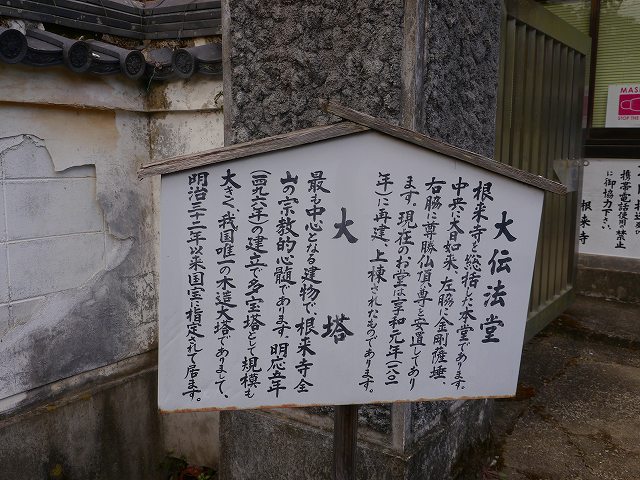 MAS
STOP THE
携帯電話使用禁止
に御協力下さい
根来寺
大伝法堂
根来寺を総括した本堂であります。
中央に大日如来、左脇に金剛薩埵、
右脇に尊勝仏頂の尊を安置してあり
ます。現在のお堂は享和元年(一八〇一
年)に再建、上棟されたものであります。
大塔
最も中心となる建物で、根来寺全
山の宗教的心髄であります。明応五年
(一四九六年)の建立で多宝塔として規模も
大きく、我国唯一の木造大塔でありまして、
明治三十二年以来国宝に指定されて居ます。